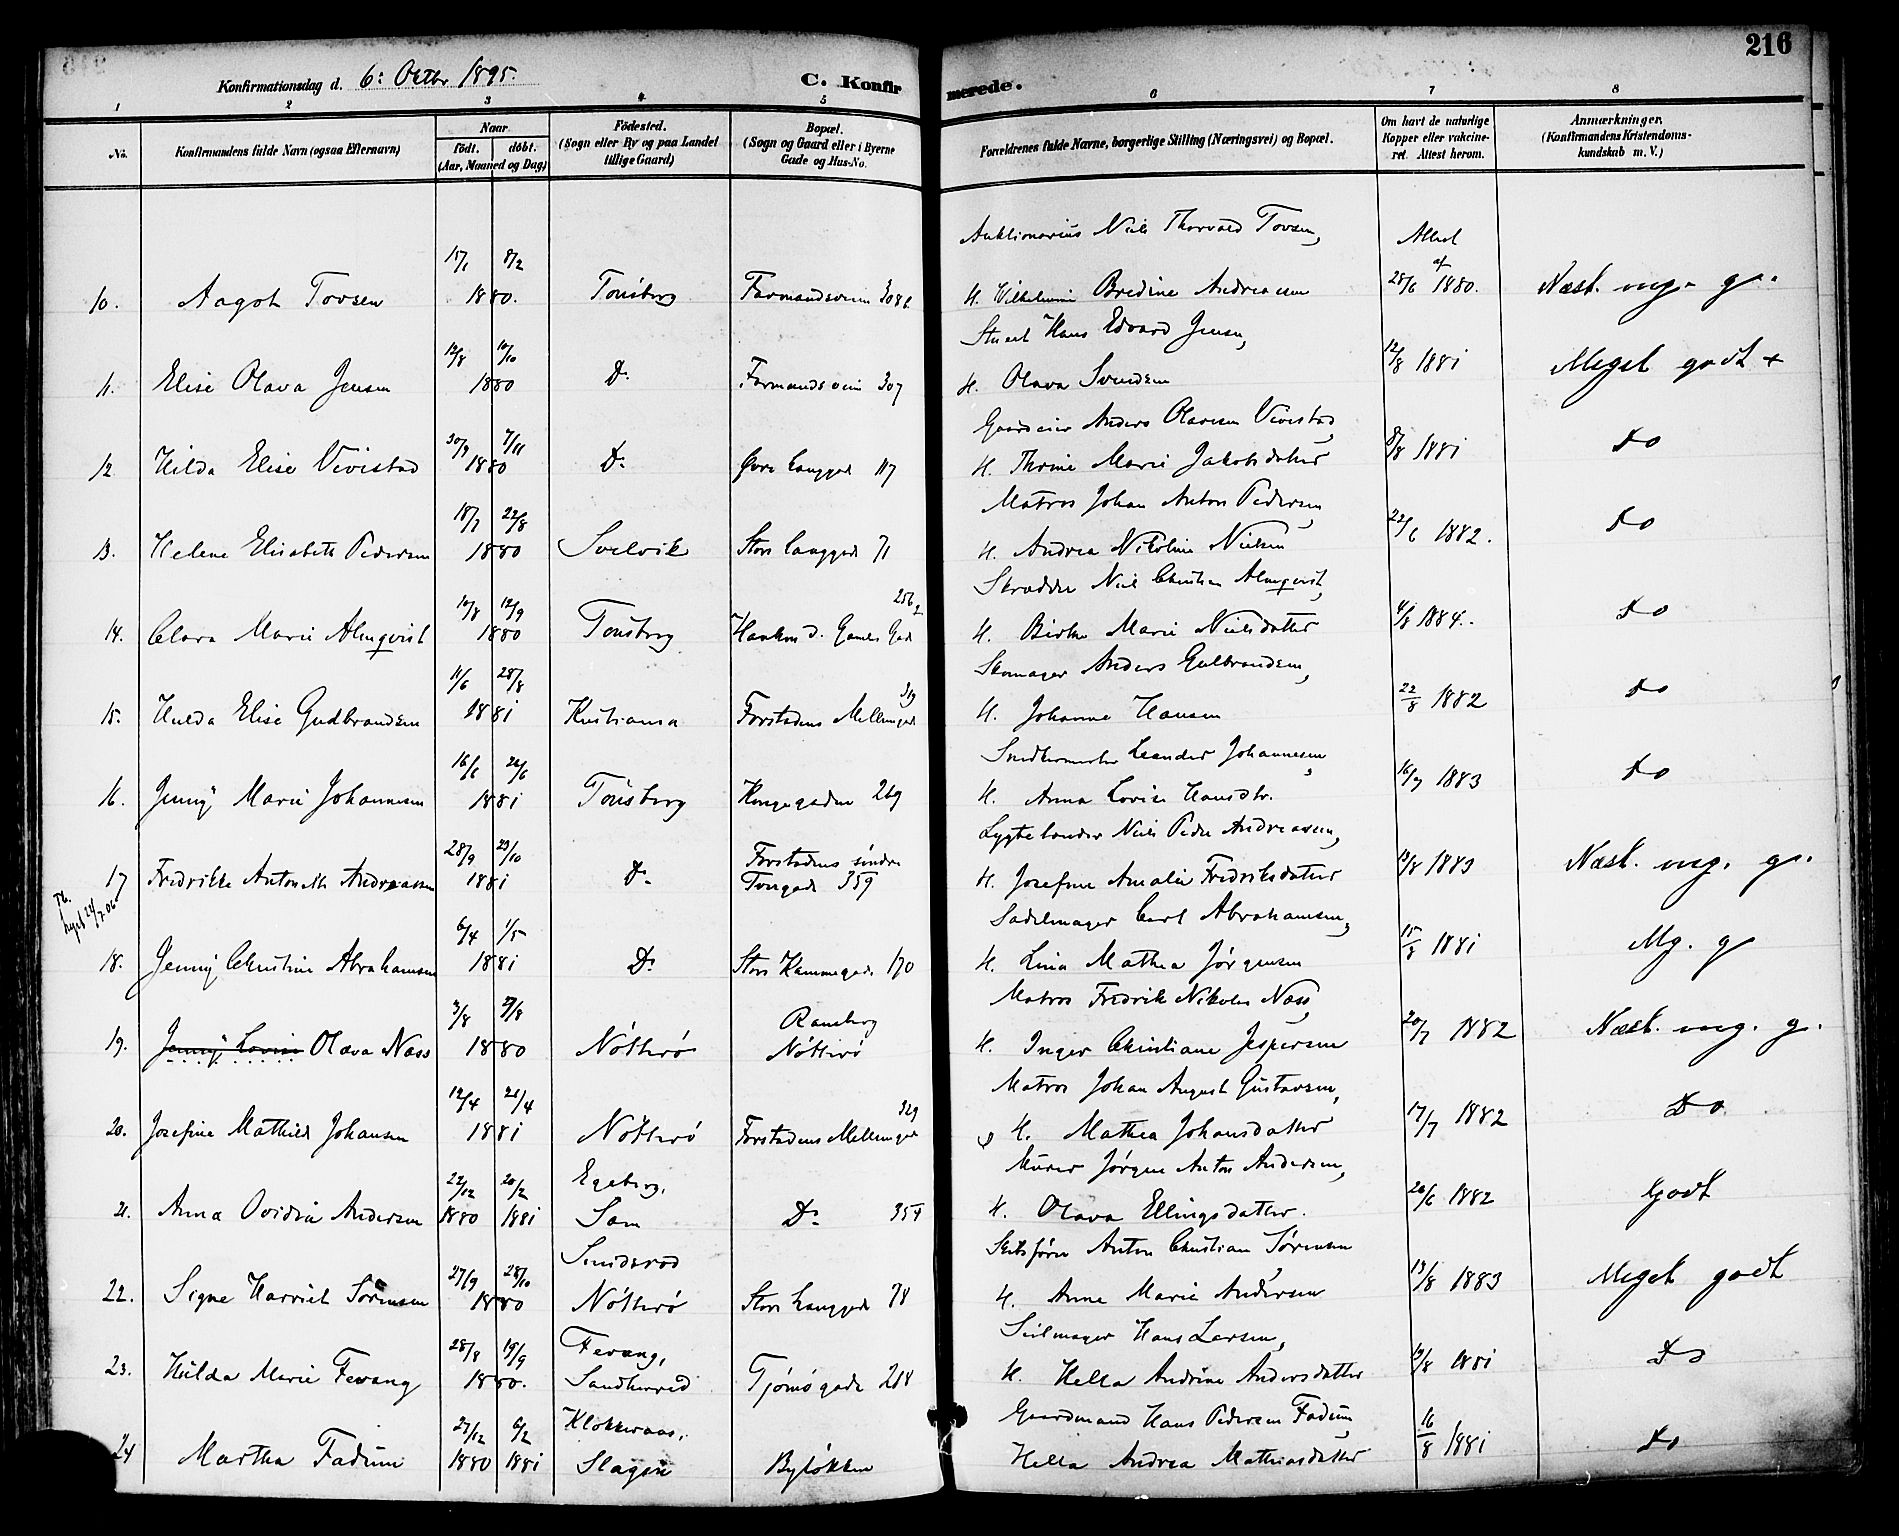 216
Konfirmationsdag d. 6: Octbr 1895.
C. Konfirmerede.
1 2 3 4 5 6 7 8
No.
Konfirmandens fulde Navn (ogsaa Efternavn)
Naar
födt. döbt.
(Aar, Maaned og Dag)
Födested.
(Sogn eller By og paa Landet
tillige Gaard)
Bopæl.
(Sogn og Gaard eller i Byerne
Gade og Hus-No.
Forældrenes fulde Navne, borgerlige Stilling (Næringsvei) og Bopæl.
Om havt de naturlige
Kopper eller vakcine-
ret. Attest herom.
Anmærkninger.
(Konfirmandens Kristendoms-
kundskab m. V.)
Auktionarius Niels Thorvald Tovsen,
Attest
15/1 8/2 af
10. Aagot Tovsen 1880. Tönsberg Farmandsveien 308 H. Vilhelmine Bredine Andreassen 28/6 1880. Næst. mg. g.
Hans Edvard Jensen,
12/8 10/10
11. Elise Olava Jensen 1880 Do Farmandsveien 307 H. Olava Svendsen 12/8 1881 Meget godt +
Gaardeier Anders Olavsen Vivestad,
30/9 7/11
12 Hilda Elise Vivestad 1880 Do Øvre Langgad 117 H. Thrine Marie Jakobsdatter 8/8 1881 Do
Matros Johan Anton Pedersen,
18/7 22/8
13. Helene Elisabeth Pedersen 1880 Svelvik Store Langgade 71 H. Andrea Nikoline Nielsen 22/6 1882. Do
Skrædder Niels Christian Almqvist,
10/8 12/9 256
14. Clara Marie Almqvist 1880 Tönsberg Haakon d. Gamles Gad H. Birthe Marie Nielsdatter 4/8 1884. Do
Skomager Anders Gulbrandsen,
11/6 28/8 319
15. Hulda Elise Gudbrandsen 1881 Kristiania Forstadens Mellemgade H. Johanne Hansen 22/8 1882 Do
Leander Johannesen,
16/6 26/6
16. Jenny Marie Johannesen 1881 Tönsberg Kongegaden 269 H. Anna Lovise Hansdtr. 16/7 1883 Do
Lygtetænder Niels Peder Andreassen,
28/9 23/10 Forstadens söndre
17 Fredrikke Antonette Andreassen 1881 Do Tvergade 359 H. Josefine Amalie Fredriksdatter 13/8 1883 Næst. mg. g.
24/7.06
Sadelmager Carl Abrahamsen,
6/4 1/5
18. Jenny Christine Abrahamsen 1881 Do Store Kammegade 170 H. Lina Mathea Jørgensen 15/8 1881 Mg. g
Matros Fredrik Nikolai Næss,
3/8 29/8 Ramberg
19. Jenny Lovise Olava Næss 1880 Nötterö Nötterö H. Inger Christiane Jespersen 20/7 1882 Næst. mg. g.
Matros Johan August Gustavsen,
12/4 21/4 329
20. Josefine Mathilde Johansen 1881 Nötterö Forstadens Mellemgade H. Mathea Johansdatter 17/7 1882 Do
Murer Jörgen Anton Andersen,
22/12 20/2 Egeberg,
21. Anna Ovidia Andersen 1880 1881 Sem Do 354 H. Olava Ellingsdatter. 20/6 1882 Godt
Skibsförer Anton Christian Sørensen
27/9 28/10 Smidsrød
22. Signe Harriet Sørensen 1880 Nötterö Store Langgade 78 H. Anne Marie Andersen 13/8 1883 Meget godt
Seilmager Hans Larsen,
28/8 19/9 Fevang,
23. Hulda Marie Fevang 1880. Sandherred Tjömögade 218 H. Hella Andrine Andersdatter 12/8 1881 Do
Gaardmand Hans Pedersen Fadum,
27/12 6/2 Klokkeraas,
24 Martha Fadum 1880 1881 Slagen Byløkken Hella Andrea Mathiasdatter 16/8 1881 Do